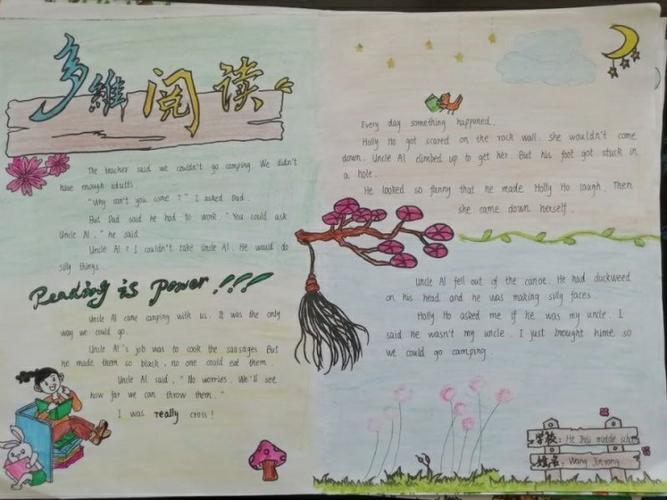 多維阅读
The teacher said we couldn't go camping. We didn't
have enough adults.
"Why can't you come?" I asked Dad.
But Dad said he had to work. "You could ask
Uncle Al," he said.
Uncle Al? I couldn't take Uncle Al. He would do
silly things.
Reading is power!!!
Uncle Al came camping with us. It was the only
way we could go.
Uncle Al's job was to cook the sausages. But
he made them so black, no one could eat them.
Uncle Al said, "No worries. We'll see
how far we can throw them."
I was really cross!
Every day something happened.
Holly Ho got scared on the rock wall. She wouldn't come
down. Uncle Al climbed up to get her. But his foot got stuck in
a hole.
He looked so funny that he made Holly Ho laugh. Then
she came down herself.
Uncle Al fell out of the canoe. He had duckweed
on his head and he was making silly faces.
Holly Ho asked me if he was my uncle. I
said he wasn't my uncle. I just brought hime so
we could go camping.
学校: He middle
姓名: Wang